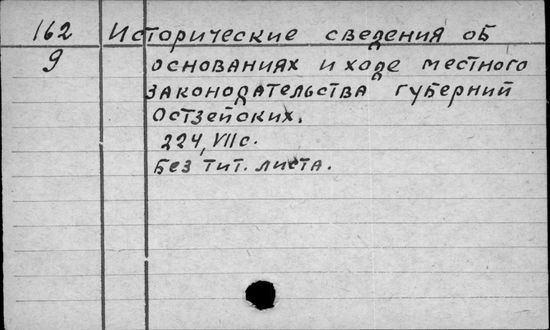 162 Исторические сведения об
9 основаниях и ходе местного
законодательства губерний
Остзейских.
224, VII с.
Без тит. листа.